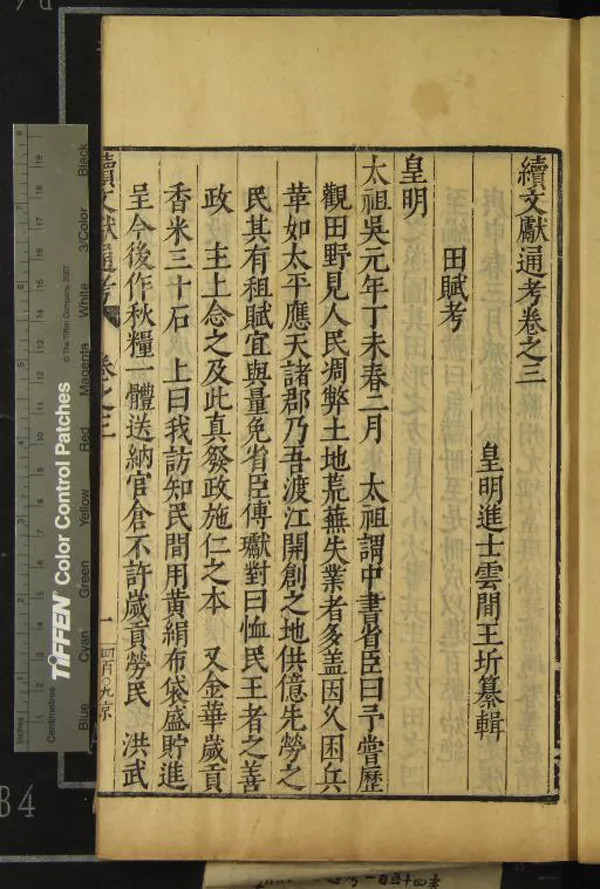 續文獻通考卷之三
皇明進士雲間王圻纂輯
田賦考
皇明
太祖吳元年丁未春二月 太祖謂中書省臣曰予嘗歷
觀田野見人民凋弊土地荒蕪失業者多盖因久困兵
革如太平應天諸郡乃吾渡江開創之地供億先勞之
民其有租賦宜與量免省臣傅瓛對曰恤民王者之善
政 主上念之及此真發政施仁之本 又金華歲貢
香米三十石 上曰我訪知民間用黃絹布袋盛貯進
呈今後作秋糧一體送納官倉不許歲貢勞民 洪武
續文獻通考 卷之三
一
四百〇九
Inches
Centimetres
TIFFEN Color Control Patches
© The Tiffen Company, 2007
Blue
Cyan
Green
Yellow
Red
Magenta
White
3/Color
Black
B4